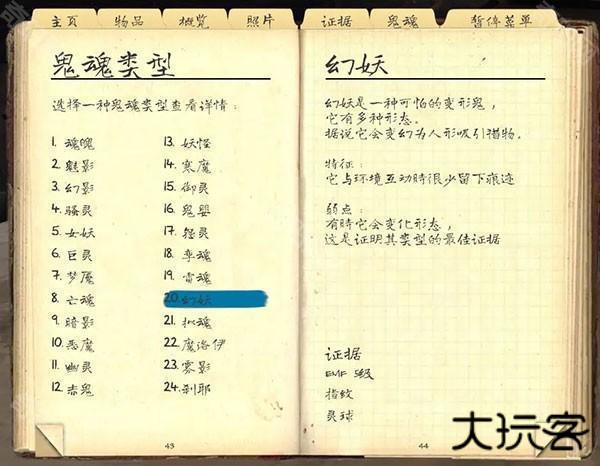 主页 物品 概览 照片 证据 鬼魂 暂停菜单
鬼魂类型
选择一种鬼魂类型查看详情：
1. 魂魄
2. 魅影
3. 幻影
4. 骚灵
5. 女妖
6. 巨灵
7. 梦魇
8. 亡魂
9. 暗影
10. 恶魔
11. 幽灵
12. 赤鬼
13. 妖怪
14. 寒魔
15. 御灵
16. 鬼婴
17. 怨灵
18. 孪魂
19. 雷魂
20. 幻妖
21. 拟魂
22. 魔洛伊
23. 雾影
24. 刹耶
43
幻妖
幻妖是一种可怕的变形鬼，
它有多种形态。
据说它会变幻为人形吸引猎物。
特征：
它与环境互动時很少留下痕迹
弱点：
有時它会变化形态，
这是证明其类型的最佳证据
证据
EMF 5级
指纹
灵球
44
大玩客